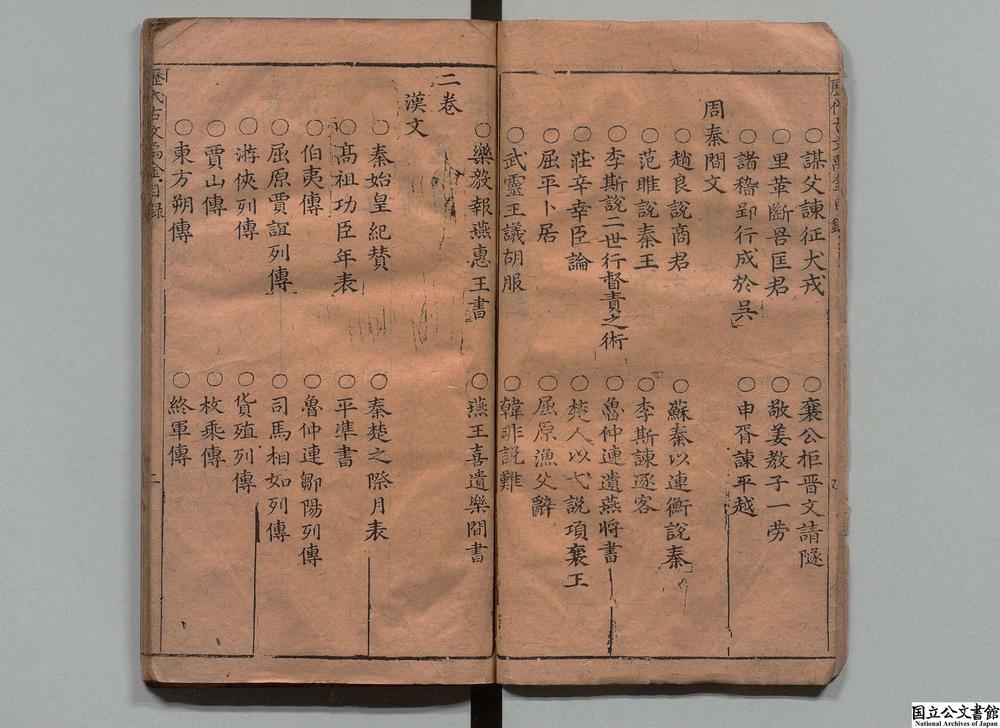 ○謀父諫征犬戎 ○襄公拒晋文請隧
○里革斷罟匡君 ○敬姜教子一劳
○諸稽郢行成於吳 ○申胥諫平越
周秦間文
○趙良說商君 ○蘇秦以連衡說秦
○范雎說秦王 ○李斯諫逐客
○李斯說二世行督責之術 ○魯仲連遺燕将書
○莊辛幸臣論 ○楚人以弋說項襄王
○屈平卜居 ○屈原漁父辭
○武靈王議胡服 ○韓非說難
○樂毅報燕惠王書 ○燕王喜遺樂間書
二卷
漢文
○秦始皇紀賛 ○秦楚之際月表
○髙祖功臣年表 ○平凖書
○伯夷傳 ○魯仲連鄒陽列傳
○屈原賈誼列傳 ○司馬相如列傳
○游俠列傳 ○貨殖列傳
○賈山傳 ○枚乘傳
○東方朔傳 ○終軍傳
歷代古文 目録 二
国立公文書館
National Archives of Japan